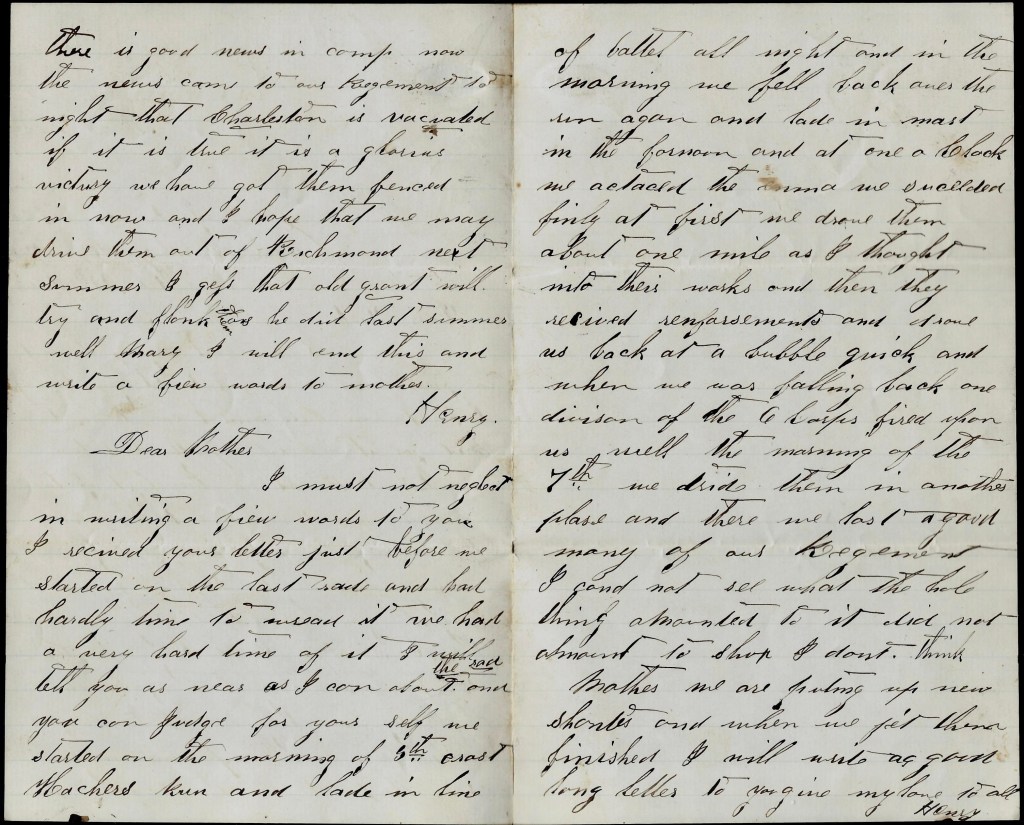 there is good news in camp now
the news came to our Regement to
night that Charleston is vacuated
if it is true it is a glorius
victury we have got them fenced
in now and I hope that we may
drive them out of Richmond next
Summer I gess that old grant will
try and flank them as he did last summer
well Mary I will end this and
write a fiew words to mother.
Henry.
Dear Mother
I must not neglect
in writing a fiew words to you
I recived your letter just before we
started on the last raid and had
hardly time to wread it we had
a very hard time of it I will
tell you as near as I can about the rad and
you can Judge for your self we
started on the morning of 5th crost
Hachers Run and lade in line
of battel all night and in the
morning we fell back over the
run again and lade in mast
in the fornoon and at one o Clock
we actaced the we sucedded
finly at first we drove them
about one mile as I thought
into their works and then they
recived renforsements and drove
us back at a bubble quick and
when we was falling back one
divison of the 6 Corps fired upon
us well the morning of the
7th we dride them in another
plase and there we lost a good
many of our Regement
I coud not see what the hole
thing amounted to it did not
amount to shux I dont think
Mother we are puting up new
shantis and when we get them
finished I will write a good
long letter to you give my love to all
Henry